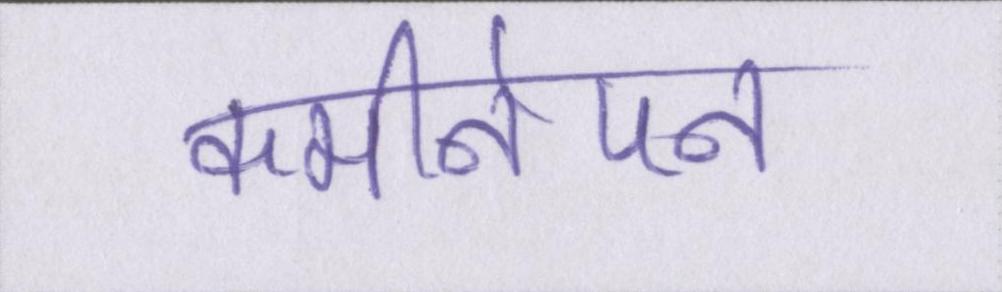 कमीनेपन